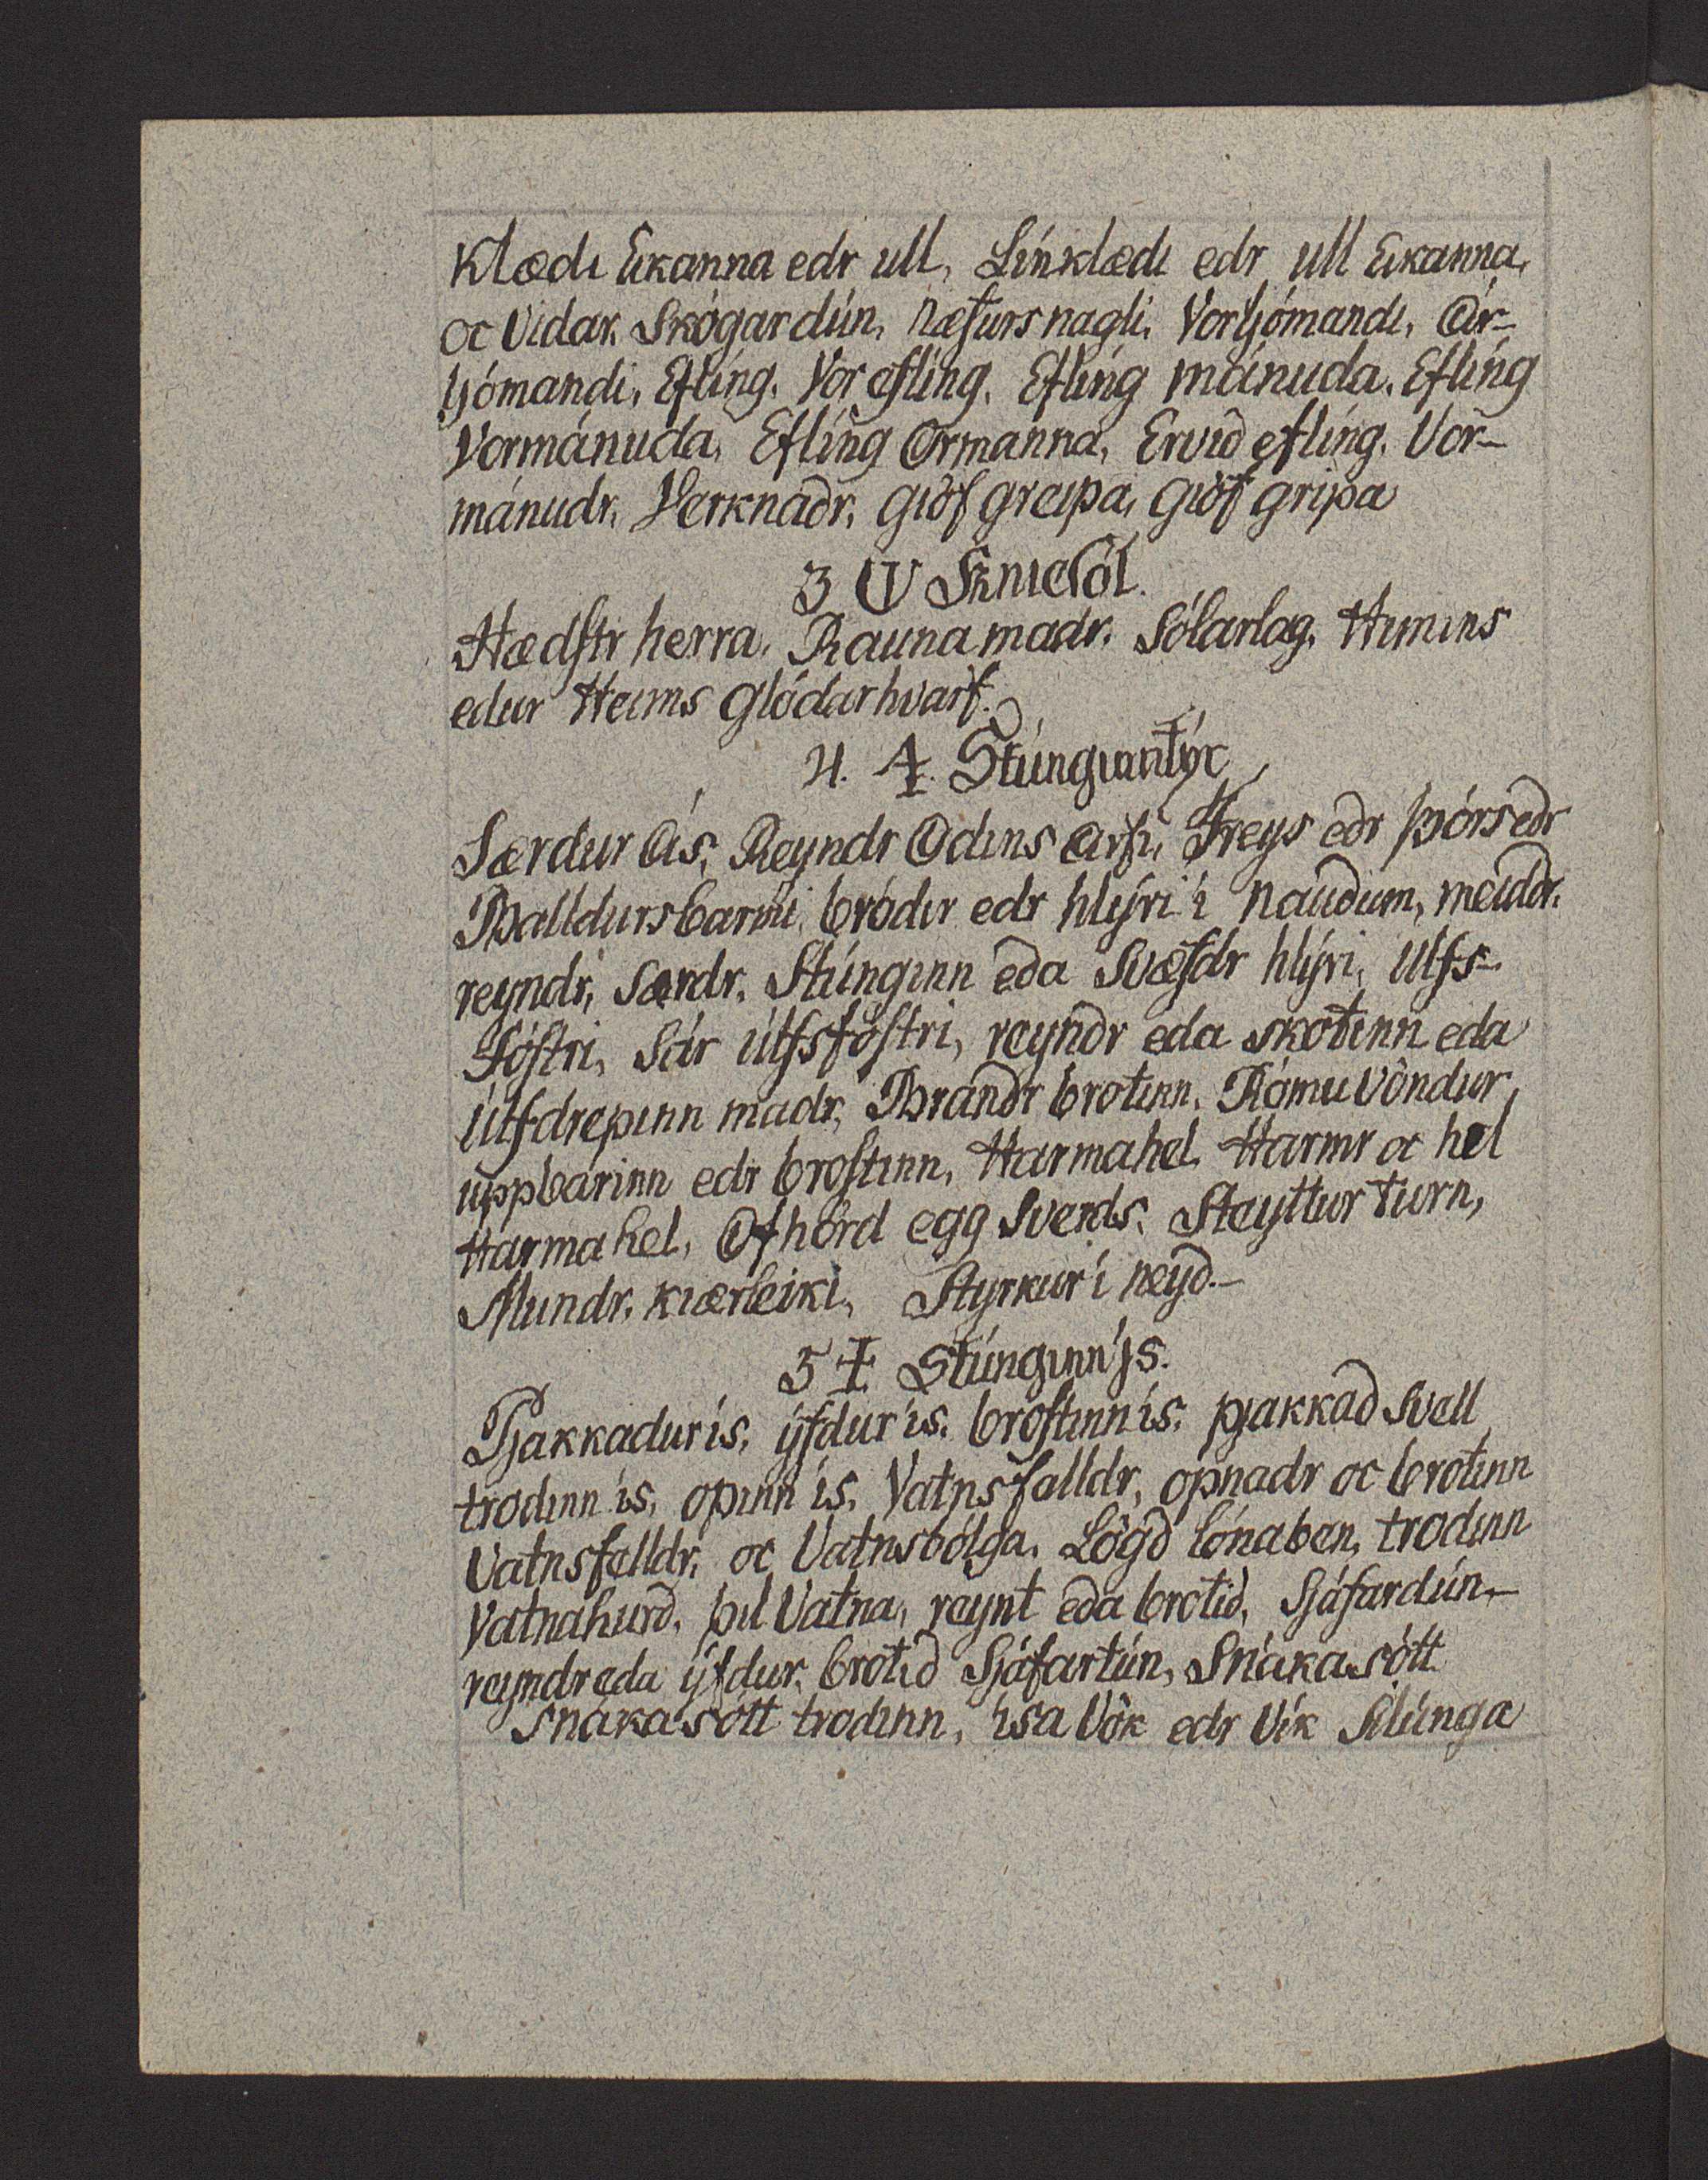 Klædi Eikanna edr ull, Línklædi edr ull Eikanna,
oc Vidar, Skógardún, næfurs nagli, Vorljómandi, Ár-
ljómandi, Efling, Vor efling, Efling mánuda, Efling
Vormánuda, Efling Ormanna, Ervid efling, Vor-
mánudr, Verknadr, giöf greipa, giöf gripa
3 Kniesól.
Hædstr herra, Rauna madr, Sólarlag, Himins
edur Heims glódarhvarf.
4. Stunginntýr
Særdur Ás, Reyndr Odins arfi, Freys edr Þiórs edr
Balldurs barmi, bródir edr hlýri í naudum, meiddr,
reyndr, særdr, Stúnginn eda Svæfdr hlýri, Ulfs-
fóstri, Sár úlfsfóstri, reyndr eda skotinn eda
úlfdrepinn madr, Brandr brotinn, Rómu Vöndur
uppbarinn edr brostinn, Harmahel, Harmr oc hel
Harma hel, Ofhörd egg Sverds, Steyttur turn,
Mundr, kiærleiki, Styrkur í neyd.-
5 Stúnginn ís.
Pjakkadur ís, ýfdur ís, brostinn ís, pjakkad Svell
trodinn ís, opinn ís, Vatnsfelldr, opnadr oc brotinn
Vatnsfelldr, oc Vatnsbólga, Lögd lónaben, trodinn
Vatnahurd, þil Vatna, reynt eda brotid, Sjáfardún-
reyndr eda ýfdur, brotid Sjáfartún, Snáka sótt
Snáka sótt trodinn, ísa Vök edr Vík Silúnga